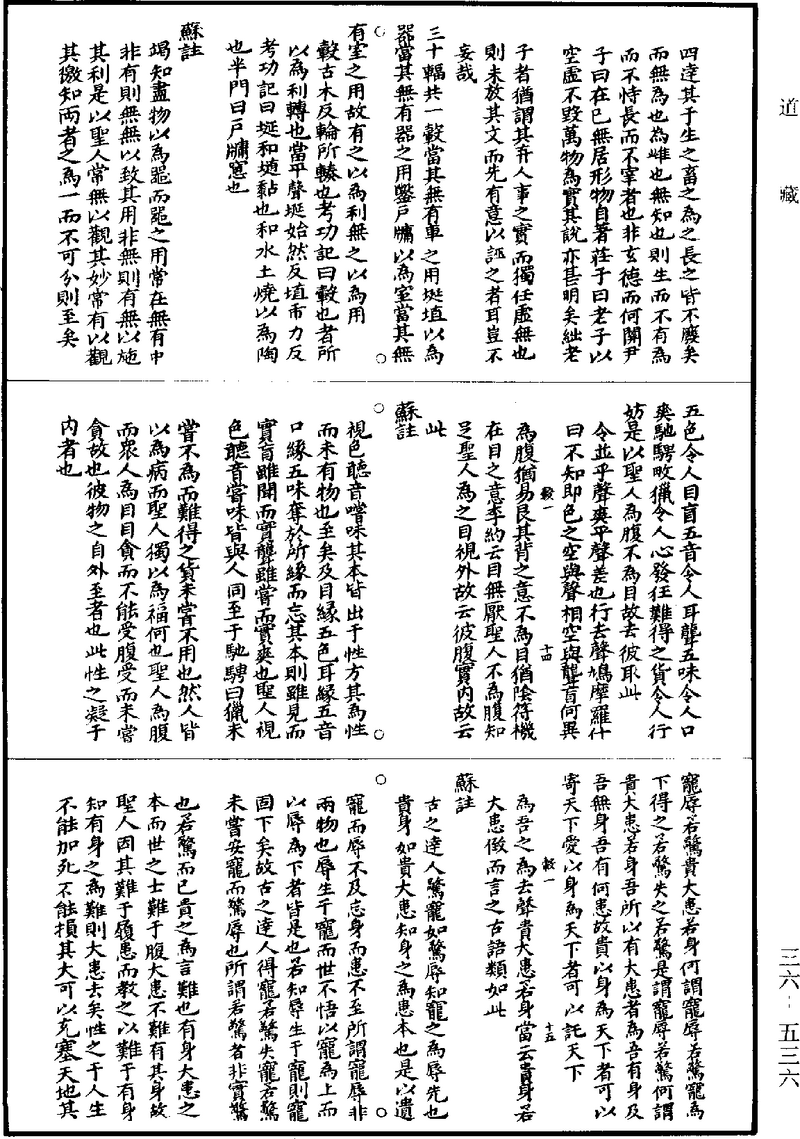 道藏
四達其于生之畜之為之長之皆不廢矣
而無為也為雌也無知也則生而不有為
而不恃長而不宰者也非玄德而何關尹
子曰在已無居形物自著莊子曰老子以
空虛不毀萬物為實其說亦甚明矣絀老
子者猶謂其弃人事之實而獨任虛無也
則未放其文而先有意以誣之者耳豈不
妄哉
三十輻共一轂當其無有車之用埏埴以為
器當其無有器之用鑿戶牖以為室當其無
有室之用故有之以為利無之以為用
轂古木反輪所轃也考功記曰轂也者所
以為利轉也當平聲埏始然反埴市力反
考功記曰埏和埴黏也和水土燒以為陶
也半門曰戶牖窻也
蘇註
竭知盡物以為噐而噐之用常在無有中
非有則無無以致其用非無則有無以施
其利是以聖人常無以觀其妙常有以觀
其徼知兩者之為一而不可分則至矣
五色令人目盲五音令人耳聾五味令人口
爽馳騁畋獵令人心發狂難得之貨令人行
妨是以聖人為腹不為目故去彼取此
令並平聲爽平聲差也行去聲鳩摩羅什
曰不知即色之空與聲相空與聾盲何異
為腹猶易艮其背之意不為目猶陰符機
在目之意李約云目無厭聖人不為腹知
足聖人為之目視外故云彼腹實內故云
此
蘇註
視色聽音嚐味其本皆出于性方其為性
而未有物也至矣及目緣五色耳緣五音
口緣五味奪於所緣而忘其本則雖見而
實盲雖聞而實聾雖嘗而實爽也聖人視
色聽音嘗味皆與人同至于馳騁曰獵未
嘗不為而難得之貨未嘗不用也然人皆
以為病而聖人獨以為福何也聖人為腹
而眾人為目目貪而不能受腹受而未嘗
貪故也彼物之自外至者也此性之凝于
內者也
彀一
十四
寵辱若驚貴大患若身何謂寵辱若驚寵為
下得之若驚失之若驚是謂寵辱若驚何謂
貴大患若身吾所以有大患者為吾有身及
吾無身吾有何患故貴以身為天下者可以
寄天下愛以身為天下者可以託天下
為吾之為去聲貴大患若身當云貴身若
大患倣而言之古語類如此
蘇註
古之達人驚寵如驚辱知寵之為辱先也
貴身如貴大患知身之為患本也是以遺
寵而辱不及忘身而患不至所謂寵辱非
兩物也辱生于寵而世不悟以寵為上而
以辱為下者皆是也若知辱生于寵則寵
固下矣故古之達人得寵若驚失寵若驚
未嘗安寵而驚辱也所謂若驚者非實驚
也若驚而已貴之為言難也有身大患之
本而世之士難于履大患不難有其身故
聖人因其難于履患而教之以難于有身
知有身之為難則大患去矣性之于人生
不能加死不能損其大可以充塞天地其
彀一
十五
三六·五三六